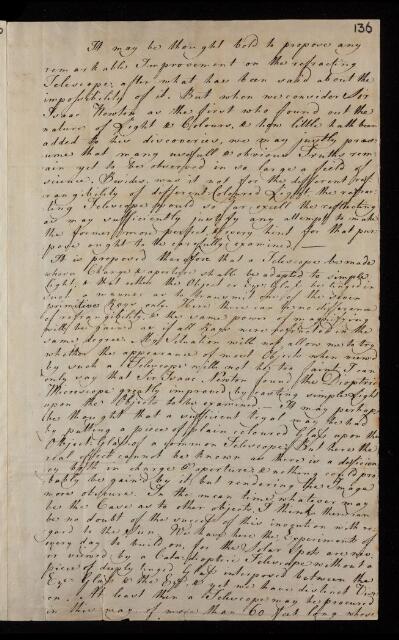 136
It may be thought bold to propose any
remarkable Improvement on the refracting
Telescope, after what has been said about the
impossibility of it. But when we consider Sir
Isaac Newton as the first who found out the
nature of Light & Colours, & how little hath been
added to his discoveries, we may justly pres-
ume that many usefull & obvious Truths rem-
ain yet to be observed in so large a field of
science. Besides, was it not for the different ref-
rangibility of different Coloured Light the refrac-
ting Telescope would so far excell the reflecting
as may sufficiently justify any attempt to make
the former more perfect, & every hint for that pur-
pose ought to be carefully examined. —
It is proposed therefore that a Telescope be made
whose Charge & aperture shall be adapted to simple
Light, & that either the Object or Eye Glass be tinged in
such a manner as to transmit one of the seven
primitive Rays only. Here there can be no difference
of refrangibility & the same power of magnifying
will be gained as if all Rays were refracted in the
same degree. My Situation will not allow me to try
whether the appearance of most Objects when viewed
by such a Telescope will not be too faint. I can
only say that Sir Isaac Newton found the Dioptric
Microscope greatly improved by casting simple Light
upon the Objects to be examined — It may perhaps
be thought that a sufficient Tryal may be had
by putting a piece of plain coloured Glass upon the
Object Glass of a common Telescope. But here the
real effect cannot be known as there is a deficien-
cy both in charge & aperture & nothing could pro-
bably be gained by it but rendering the Image
more obscure. In the mean time whatever may
be the Case as to other objects, I think there can
be no doubt of the success of this invention with re-
gard to the Sun. We have here the Experiments of
every day to build on, for the Solar Spots are nev-
er viewed by a Catadioptric Telescope without a
piece of deeply tinged Glass interposed between the
Eye Glass & the Eye & yet we have distinct Visi-
on. At least then a Telescope may be procured
in this way of more than 60 feet long whose